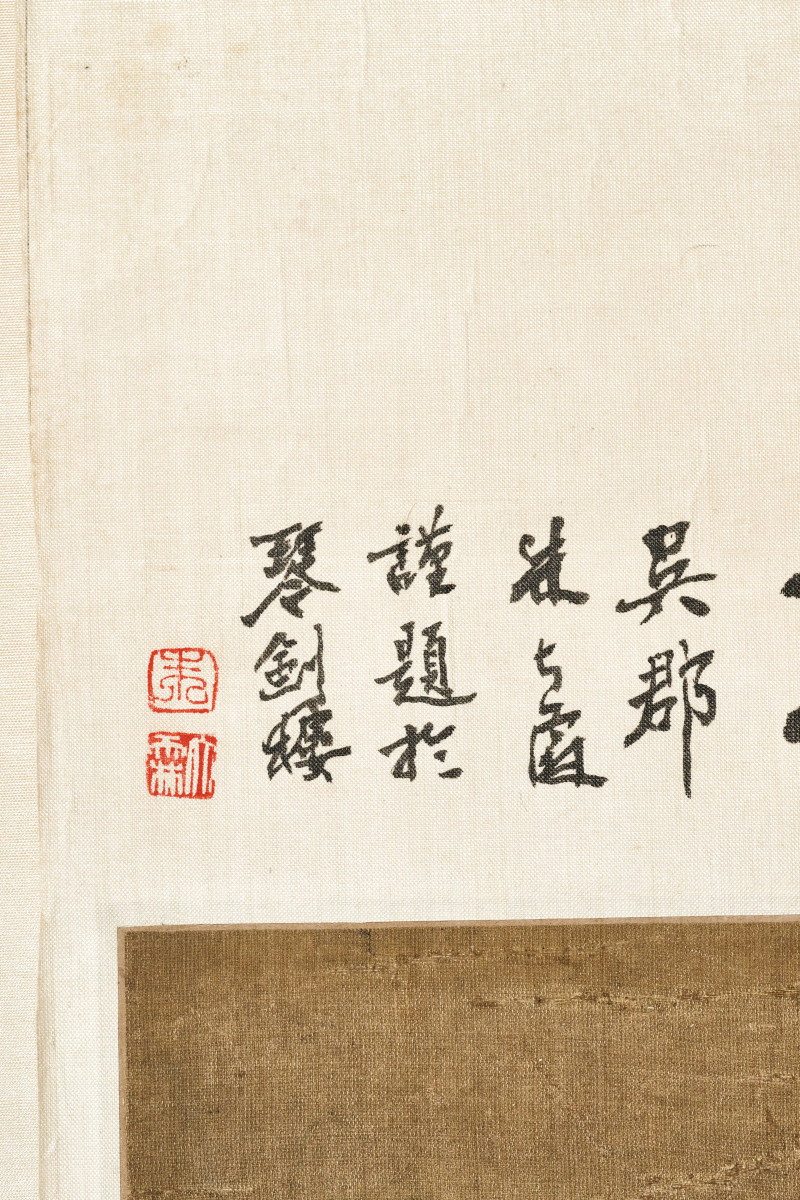 吳郡
朱
謹題於
琴劍樓
朱